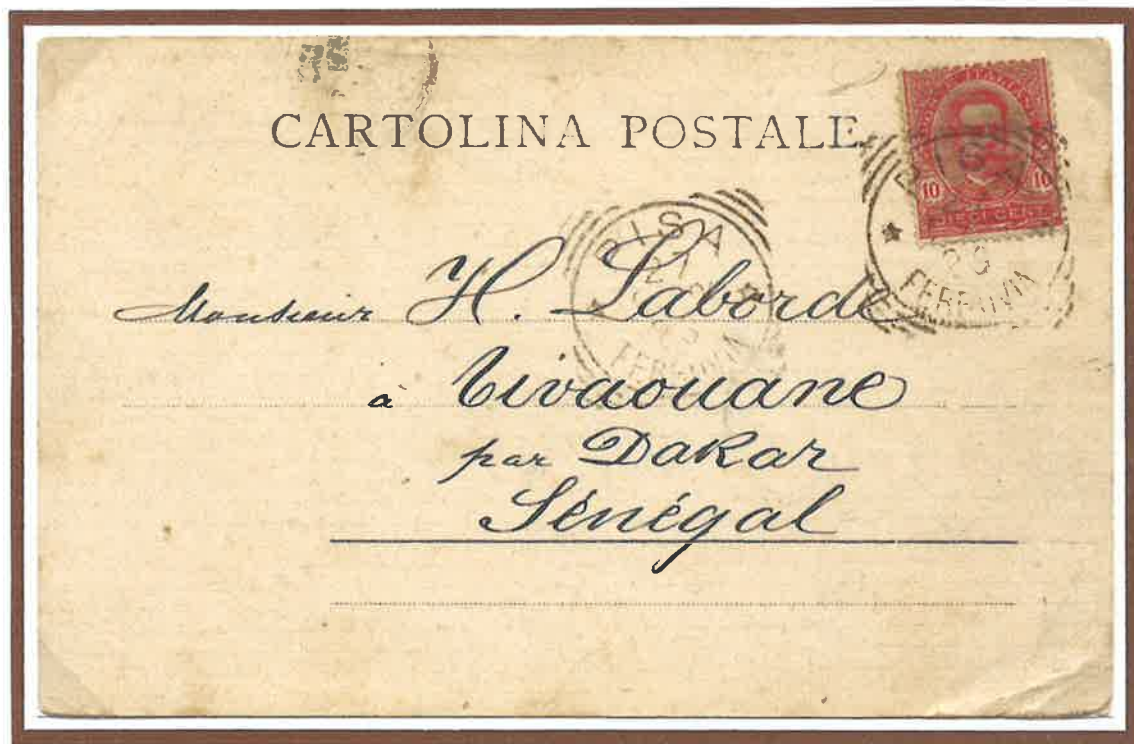 CARTOLINA POSTALE
10 10
DIECI CENT.
PISA
FERROVIA
PISA
21
FERROVIA
Monsieur H. Laborde
à Tivaouane
par Dakar
Sénégal